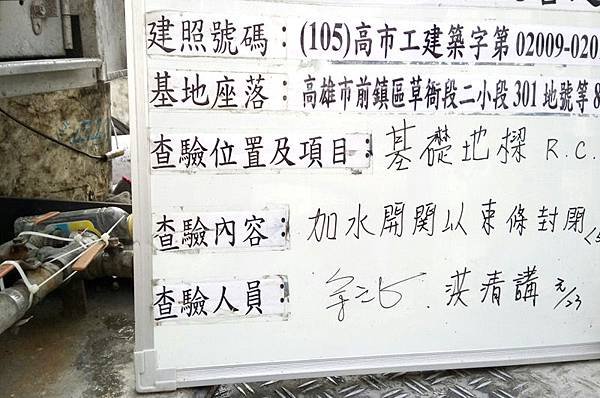 建照號碼：(105)高市工建築字第 02009-020
基地座落：高雄市前鎮區草衙段二小段 301 地號等 8
查驗位置及項目：基礎地樑 R.C.
查驗內容：加水開関以束條封閉
查驗人員：洪清講 元/23